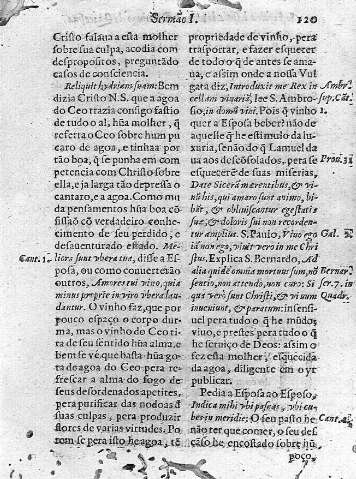 Sermão I.
120
Cristo falaua a essa molher
sobre sua culpa, acodia com
despropositos, preguntado
casos de consciencia.
Reliquit hydriam suam: Bem
dizia Cristo N.S. que a agoa
do Ceo trazia consigo fastio
de tudo o al, hũa molher, q̃
refetta o Ceo sobre hum pu
caro de agoa, e tinhaa por
tão boa, q̃ se punha em com
petencia com Christo sobre
ella, e ja larga tão depressa o
cantaro, e a agoa. Como mu
da pensamentos hũa boa cõ
fissaõ cõ verdadeiro conhe
cimento de seu perdido, e
desauenturado estado. Me-
Cant. 1.
liora sunt vbera tua, disse a Es
posa, ou como conuerterão
outros, Amores tui vino, quia
minus proprie in viro vbera lau-
dantur. O vinho faz, que por
pouco espaço o corpo dur-
ma, mas o vinho do Ceo ti-
ra de seu sentido hũa alma, e
bem se vè, que basta hũa go-
ta do agoa do Ceo pera re-
frescar a alma do fogo de
seus desordenados apetites,
pera purificar das nodoas
suas culpas, pera produzir
flores de varias virtudes. Po
rem se pera isto he agoa, tẽ
propriedade de vinho, pera
trasportar, e fazer esquecer
de todo o q̃ de antes se ama-
ua, e assim onde a nossa Vul
gata diz, Introduxit me Rex in
Ambr.
cellam vinariã, lee S. Ambro-
sup. Cãt.
sio, in domũ vini. Pois q̃ vinho
1.
quer a Esposa beber? não de
aquelle q̃ he estimulo da lu-
xuria, senão do q̃ Lamuel da
ua aos descõsolados, pera se
Prou. 31
esquecerẽ de suas miserias,
Date Siceram merentibus, & vi-
nũ his, qui amaro sunt animo, bi-
bãt, & obliuiscantur egestatis
suæ, & doloris sui non recorden-
tur amplius. S. Paulo, Viuo ego
Gal.
iã non ego, viuit vero in me Chri
stus. Explica S. Bernardo, Ad
alia quidẽ omnia mortuus sum, nõ
Bernar.
sentio, non attendo, non curo: Si
ser. 7. in
qua verò sunt Christi, & viuum
Quadr.
inueniunt, & paratum: insensi-
uel pera tudo o q̃ he mũdo,
viuo, e prestes pera tudo o q̃
he seruiço de Deos: assim o
fez esta molher, esquecida
da agoa, diligente em o yr
publicar.
Pedia a Esposa ao Esposo,
Indica mihi vbi pascas, vbi cu-
bes in meridie: O seu pasto he
Cant.
não ter que comer, o seu des
cãso he, encostado sobre hũ
poço,